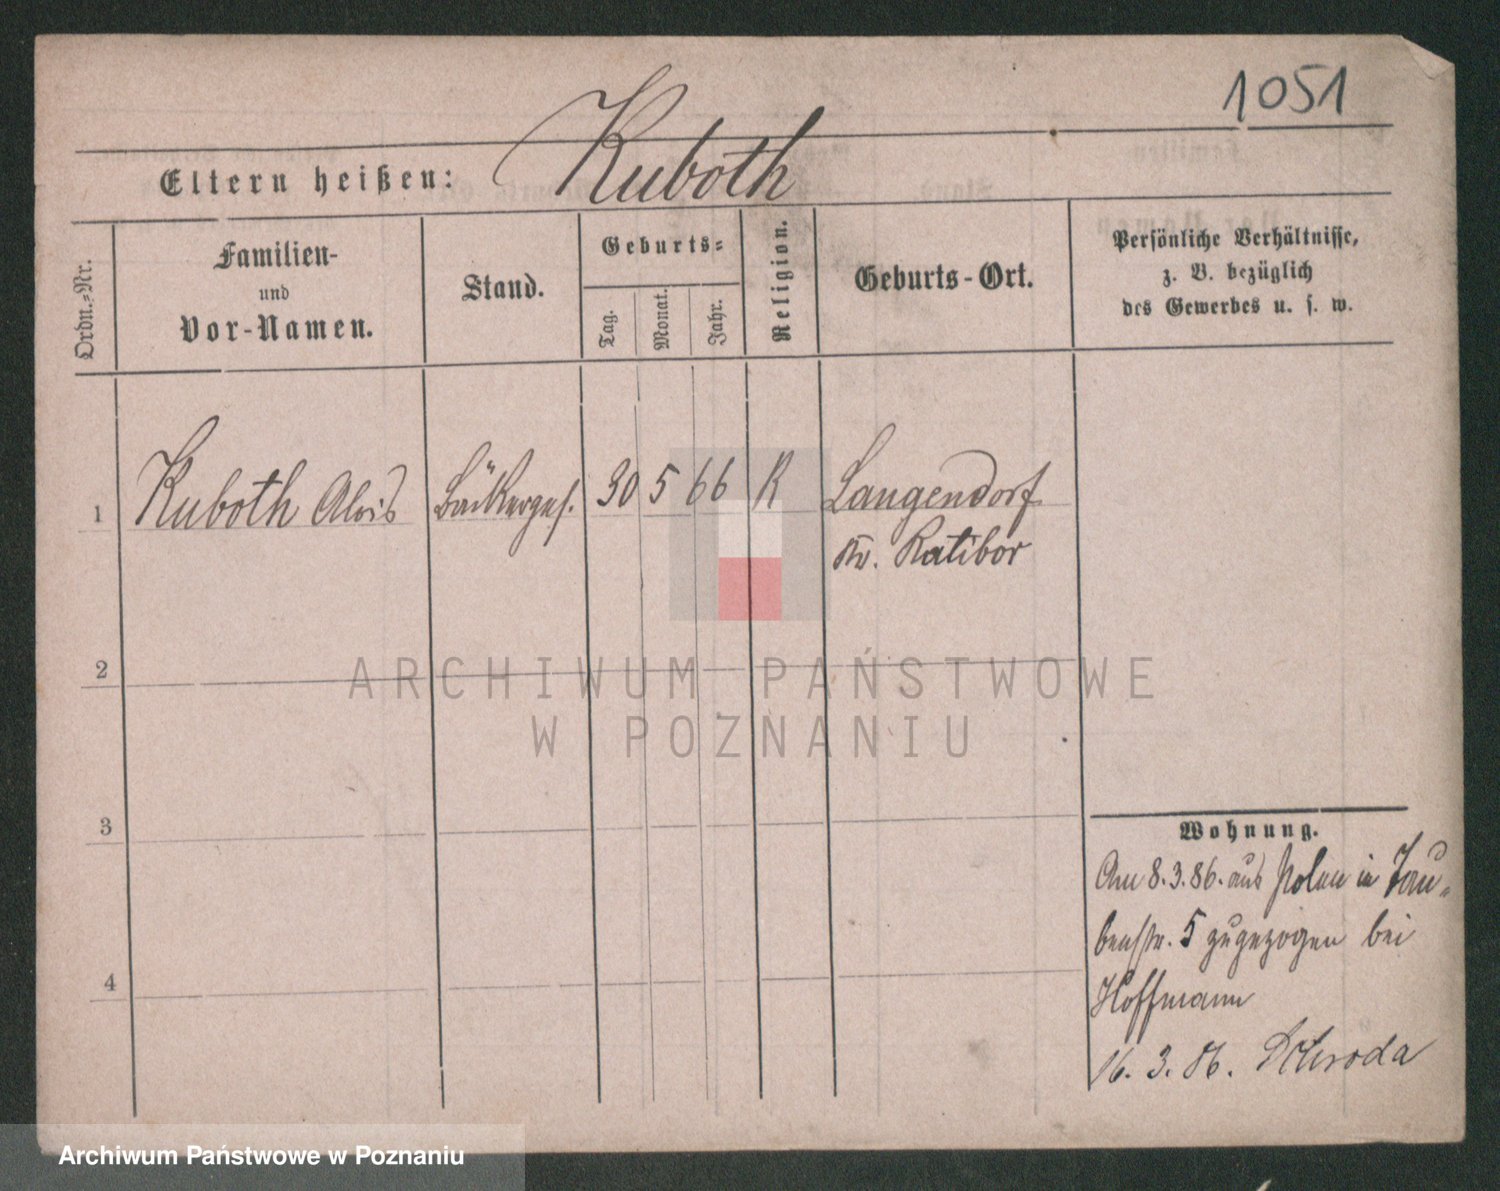 1051
Eltern heißen: Kuboth
Ordn.-Nr.
Familien-
und
Vor-Namen.
Stand.
Geburts-
Tag.
Monat.
Jahr.
Religion.
Geburts-Ort.
Persönliche Verhältnisse,
z. B. bezüglich
des Gewerbes u. s. w.
1 Kuboth Alois Bäckerges. 30 5 66 K Langendorf
Kr. Ratibor
2
ARCHIWUM PAŃSTWOWE
W POZNANIU
3
4
Wohnung.
Am 8.3.86. aus Polen in Tau-
benstr. 5 zugezogen bei
Hoffmann
16. 3. 86. Schroda
Archiwum Państwowe w Poznaniu